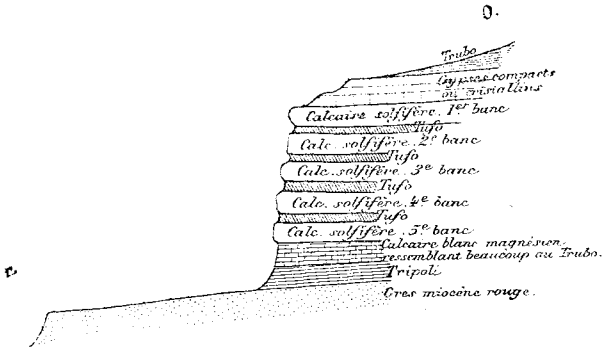 O.
Trubo
Gypses compacts
ou cristallins
Calcaire solfifère. 1er banc
Tufo
Calc. solfifère. 2e banc
Tufo
Calc. solfifère 3e banc
Tufo
Calc. solfifère. 4e banc
Tufo
Calc. solfifère. 5e banc
Calcaire blanc magnésien,
ressemblant beaucoup au Trubo.
Tripoli
Grès miocène rouge.